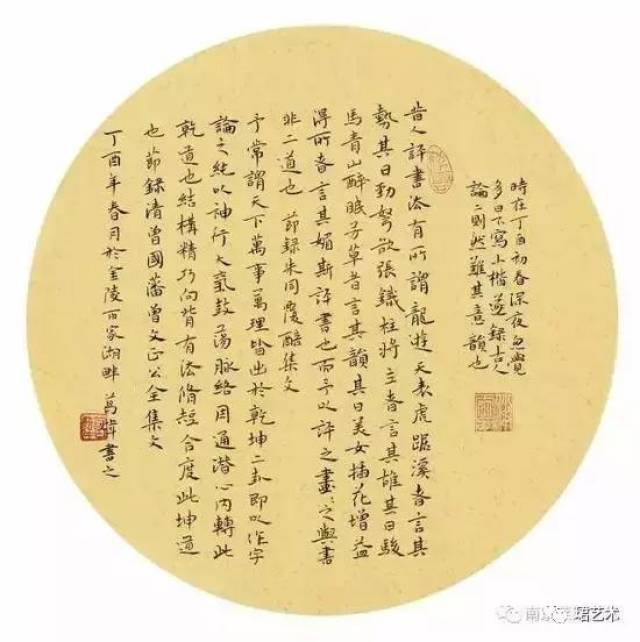 時在丁酉初春深夜忽覺
多日不寫小楷並錄古人
論二則然難其意韻也
昔人評書法有所謂龍遊天表虎踞溪者言其
勢其曰勁弩欲張鐵柱將立者言其雄其曰駿
馬青山醉眠芳草者言其韻其曰美女插花增益
得所者言其媚斯評書也而予以評之畫〻之與書
非二道也 節錄朱同覆瓿集文
予常謂天下萬事萬理皆出於乾坤二卦即以作字
論之純以神行大氣鼓蕩脉絡周通潛心內轉此
乾道也結構精巧向背有法脩短合度此坤道
也節錄清曾國藩曾文正公全集文
丁酉年春月於金陵百家湖畔 葛書之
珺艺术